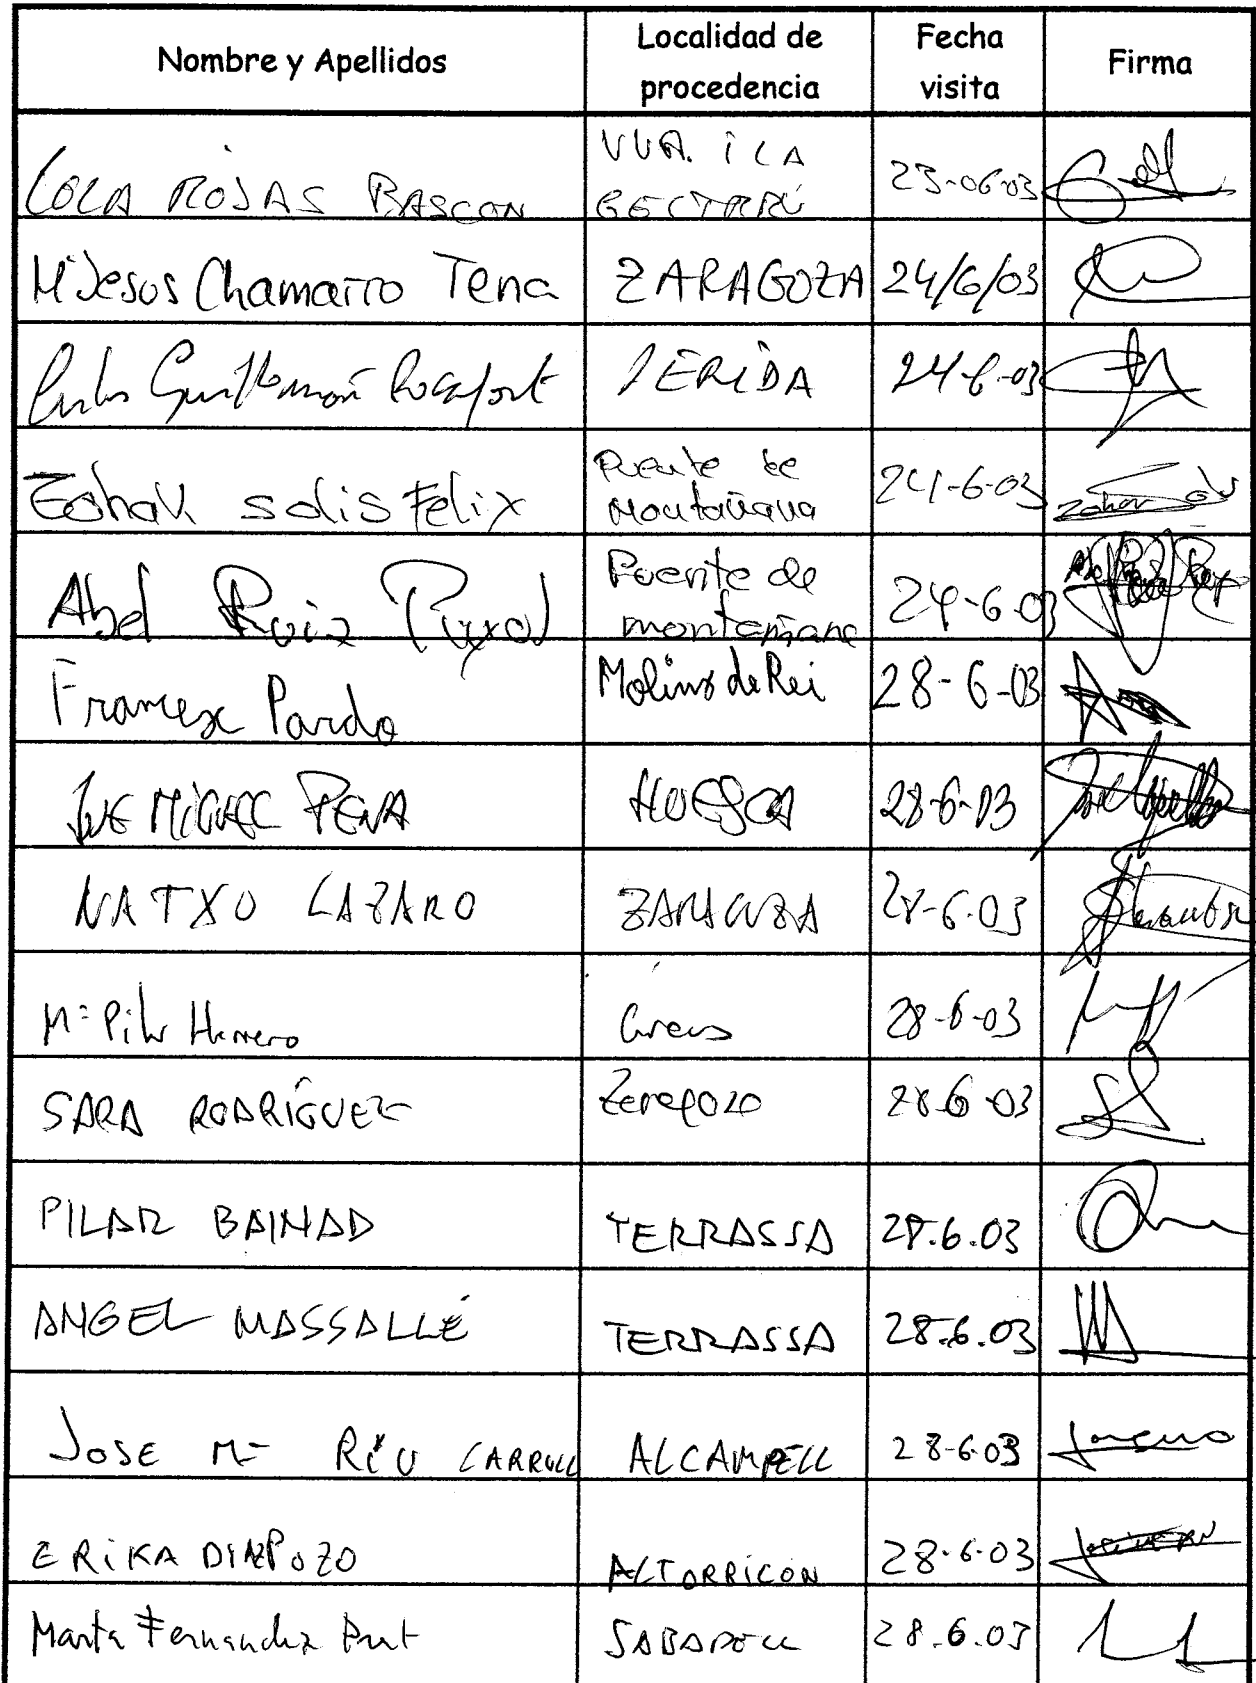 Nombre y Apellidos
Localidad de
procedencia
Fecha
visita
Firma
LOLA ROJAS BASCON
VVA. i LA
GELTRÚ
23-06-03
Mª Jesus Chamarro Tena
ZARAGOZA
24/6/03
Guillamón Rocafort
LÉRIDA
24-6-03
solis Felix
Puente de
Montañana
24-6-03
Abel Ruiz
Puente de
montañana
24-6-03
Francesc Pardo
Molins de Rei
28-6-03
JOSE MIGUEL PENA
HUESCA
28-6-03
NATXO LAZARO
ZARAGOZA
28-6-03
Mª Pilar Herrero
28-6-03
SARA RODRÍGUEZ
Zaragoza
28-6-03
PILAR BAINAD
TERRASSA
28.6.03
ANGEL MASSALLÉ
TERRASSA
28.6.03
JOSE Mª RIU CARROLL
ALCAMPELL
28-6-03
ERIKA DIAZ POZO
ALTORRICON
28-6-03
Marta Fernandez Prat
SABADELL
28.6.03